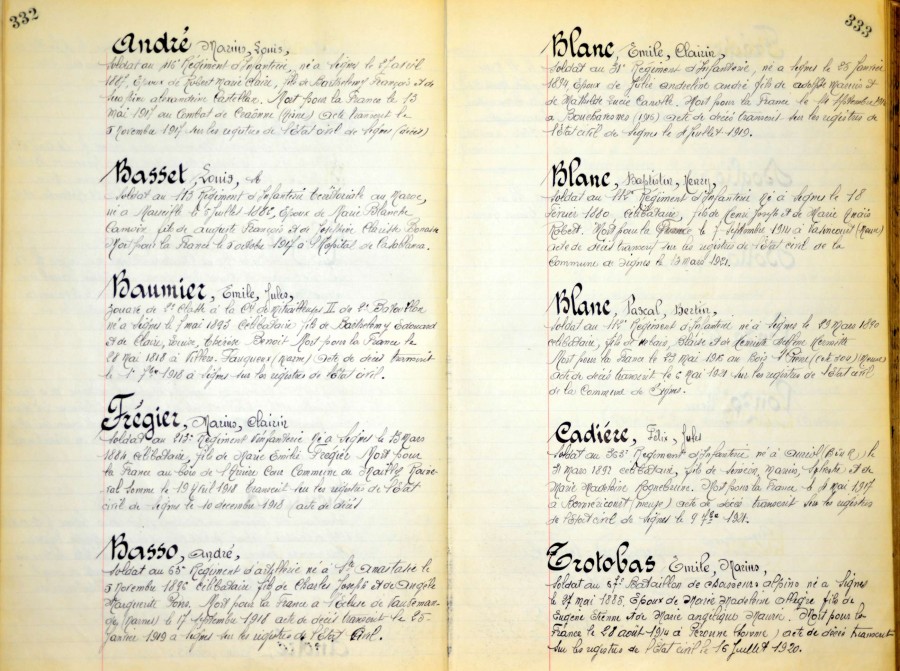 332
André Marius, Louis,
Soldat au 116e Régiment d'Infanterie, né à Signes le avril
1887, Epoux de Robert Marie Claire, fils de Barthelemy François et de
alexandrine Castellan. Mort pour la France le 13
mai 1917 au Combat de Craonne (Aisne) acte transcrit le
5 Novembre 1917 sur les registres de l'état civil de Signes (décès)
Basset, Louis, A
Soldat au 113 Régiment d'Infanterie territoriale au Maroc,
né à Marseille le 5 juillet 1882, Epoux de Marie Blanche
fils de Auguste François et de Joséphine
Mort pour la France le 5 octobre 1917 à l'Hôpital de Casablanca.
Baumier, Emile, Jules,
Zouave de 2e Classe à la Cie de II du 2e Bataillon
né à Signes le 7 mai 1893 célibataire fils de Barthelemy Edouard
et de Claire, Thérèse Benoit Mort pour la France le
28 Mai 1918 à (Marne) acte de décès transcrit
le 1er 7bre 1918 à Signes sur les registres de l'Etat civil.
Frégier, Marius, Clairin
Soldat au 213e Régiment d'infanterie né à Signes le 13 Mars
1884 célibataire, fils de Marie Emilie Frégier Mort pour
la France au Bois de Commune de Mailly
Somme le 19 avril 1918 transcrit sur les registres de l'Etat
civil de Signes le 10 décembre 1918 (acte de décès
Basso, André,
Soldat au 65e Régiment d'artillerie né à Ste Anastasie le
5 Novembre 1896 célibataire fils de Charles Joseph et de Angèle
Marguerite Pons. Mort pour la France à l'écluse de
(Marne) le 17 septembre 1918 acte de décès transcrit le 25
Janvier 1919 à Signes sur les registres de l'Etat Civil.
333
Blanc, Emile, Clairin,
Soldat au 31e Régiment d'Infanterie, né à Signes le 25 Janvier
1894 Epoux de Julie andreline andré fils de adolphe Marius et
de Mathilde Lucie Mort pour la France le 14 Septembre 1914
à acte de décès transcrit sur les registres de
l'état civil de Signes le Juillet 1919.
Blanc, Baptistin, Henry,
Soldat au 112e Régiment d'Infanterie né à Signes le 18
février 1880 célibataire, fils de Joseph et de Marie
Robert. Mort pour la France le 7 Septembre 1914 à (Meuse)
acte de décès transcrit sur les registres de l'état civil de la
Commune de Signes le 13 mars 1921.
Blanc, Pascal, Bertin,
Soldat au 112e Régiment d'Infanterie né à Signes le 23 Mars 1890
célibataire, fils de Blaise et de
Mort pour la France le 23 Mai 1915 au Bois (Meuse)
acte de décès transcrit le 6 Mai 1921 sur les registres de l'Etat civil
de la Commune de Signes.
Cadière, Félix, Jules
Soldat au Régiment d'Infanterie né à le
31 Mars 1897 célibataire, fils de Marius, Sylvestre et de
Marie Madeleine Roquebrune. Mort pour la France le 4 mai 1917
à (meuse) acte de décès transcrit sur les registres
de l'état civil de Signes le 9 7bre 1921.
Trotobas Emile, Marius,
Soldat au 67e Bataillon de Chasseurs alpins né à Signes
le 27 mai 1885. Epoux de Marie Madeleine allègre fils de
Eugène Etienne et de Marie angélique Maurin. Mort pour la
France le 28 août 1914 à Peronne (Somme) acte de décès transcrit
sur les registres de l'état civil le 15 Juillet 1920.